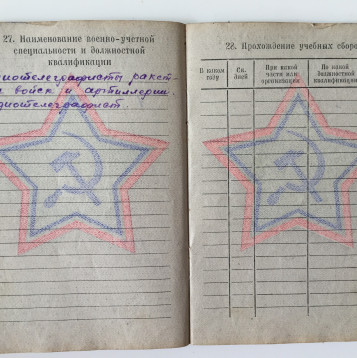 27. Наименование военно-учетной
специальности и должностной
квалификации
диотелеграфисты ракет-
войск и артиллерии.
диотелеграфист.
28. Прохождение учебных сборо
В каком году
Ск. дней
При какой части или организации
По какой должностной квалификации